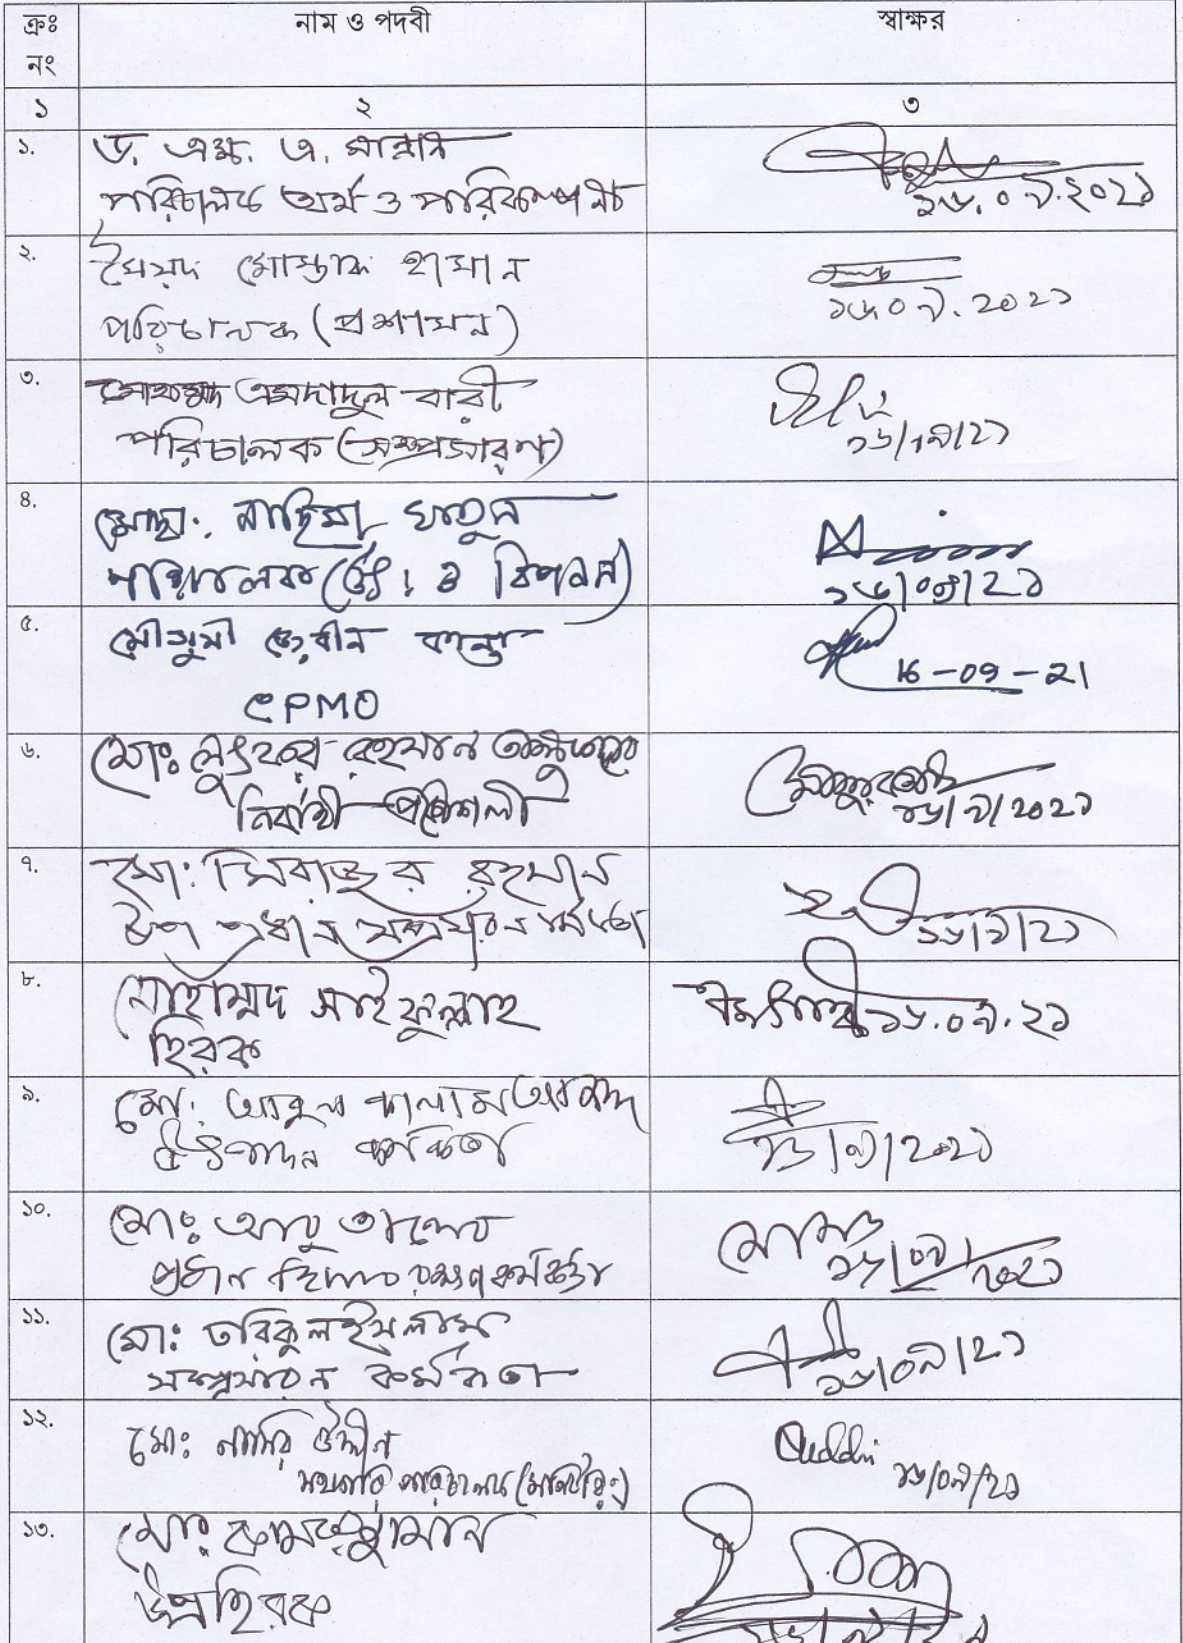 ক্রঃ নং নাম ও পদবী স্বাক্ষর
১ ২ ৩
১. ড. এম. এ. মান্নান
পরিচালক অর্থ ও পরিকল্পনা ১৬.০৯.২০২১
২. সৈয়দ মোস্তাক হাসান
পরিচালক (প্রশাসন) ১৬.০৯.২০২১
৩. মোহাম্মদ এমদাদুল বারী
পরিচালক (সম্প্রসারণ) ১৬/০৯/২১
৪. মোছাঃ নাছিমা খাতুন
পরিচালক ( ও বিপনন) ১৬/০৯/২১
৫. মৌসুমী জেরীন কান্তা 16-09-21
CPMO
৬. মোঃ লুৎফর রহমান তালুকদার
নির্বাহী প্রকৌশলী ১৬/৯/২০২১
৭. মো: সিরাজুর রহমান
উপ প্রধান সম্প্রসারন কর্মকর্তা ১৬/৯/২১
৮. মোহাম্মদ সাইফুল্লাহ ১৬.০৯.২১
হিরক
৯. মো: আবুল কালাম আজাদ
উৎপাদন কর্মকর্তা ১৬/৯/২০২১
১০. মোঃ আবু তালেব
প্রধান হিসাব রক্ষণ কর্মকর্তা ১৬/০৯/২০২১
১১. মোঃ তরিকুল ইসলাম
সম্প্রসারন কর্মকর্তা ১৬/০৯/২১
১২. মোঃ নাসির উদ্দীন Uddin
সহকারি পরিচালক (মনিটরিং) ১৬/০৯/২১
১৩. মোঃ কামরুজ্জামান